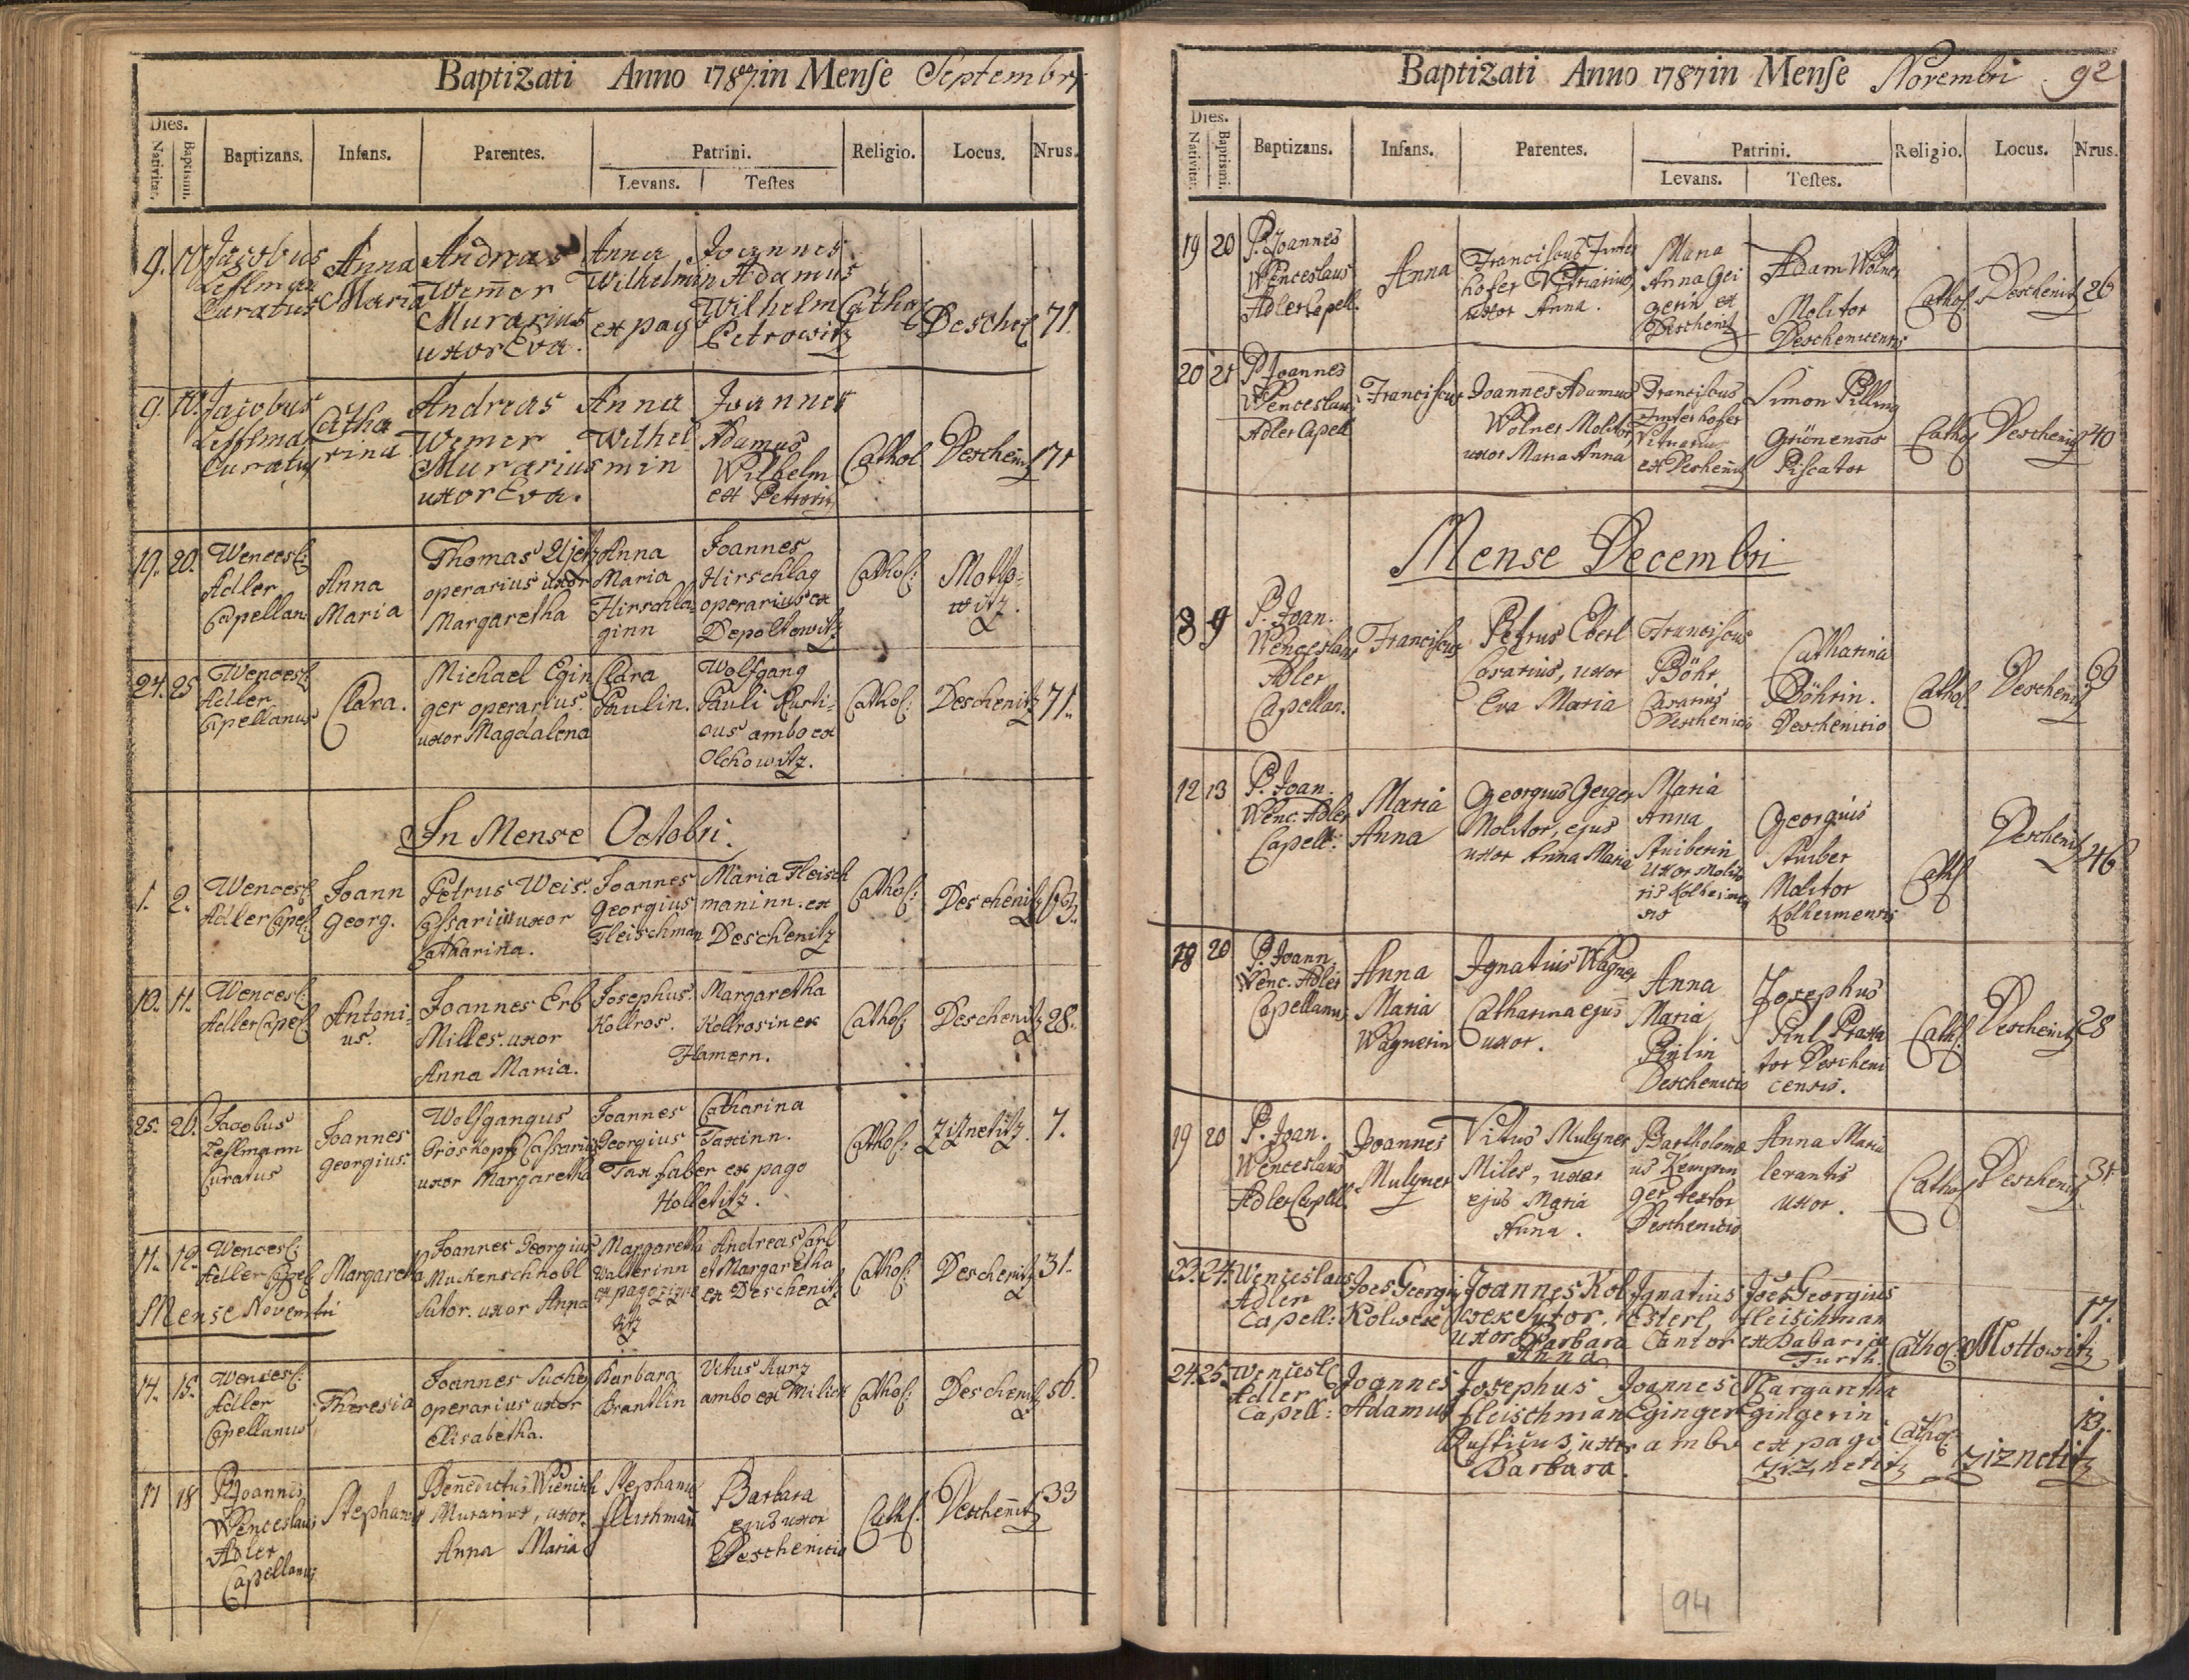 Baptizati Anno 1787 in Mense Septembri
Dies.
Nativitat. Baptismi. Baptizans. Infans. Parentes. Patrini. Religio. Locus. Nrus.
Levans. Testes
9. 10. Jacobus Anna Andreas Anna Joannes
Curatus Maria Wem̄er Wilhelmin Adamus
Murarius ex pago Wilhelm Cathol Deschen 71
uxor Eva. Petrowitz
9. 10. Jacobus Catha Andreas Anna Joannes
rina Wemer Wilhel Adamus
Curatus Murarius min Wilhelm Cathol Deschenitz 71
uxor Eva. ex Petrowitz
19. 20. Wencesl: Anna Thomas Anna Joannes
Adler Maria operarius uxor Maria Hirschlag Cathol: Motto=
Capellan Margaretha Hirschla= operarius ex witz.
ginn Depoltowitz
24. 25 Wencesl Clara. Michael Egin Clara Wolfgang
Adler ger operarius. Paulin. Pauli Rusti= Cathol: Deschenitz 71.
Capellanus uxor Magdalena cus ambo ex
Olchowitz.
In Mense Octobri.
1. 2. Wencesl Joann Petrus Weis. Joannes Maria Fleisch
Adler Capel: Georg. Cassarius uxor Georgius maninn. ex Cathol: Deschenitz 69.
Catharina. Fleischman Deschenitz
10. 11. Wencesl: Antoni= Joannes Erb Josephus Margaretha
Adler Capel us. Milles. uxor Kollros. Kollrosin ex Cathol: Deschenitz 28.
Anna Maria. Hamern.
25. 26. Jacobus Joannes Wolfgangus Joannes Catharina
Georgius. Proskopf Cassarius Georgius Taxinn. Cathol: Ziznetitz. 7.
Curatus uxor Margaretha Tax faber ex pago
Holletitz.
11. 12. Wencesl: Margareta Joannes Georgius Margareth Andreas Carl
Adler Capel Muckenschnobl Walterinn et Margaretha Cathol: Deschenitz 31.
Mense Novembri Sutor. uxor Anna ex pago ex Deschenitz
14. 15. Wencesl: Theresia Joannes Suchy Barbara Vitus Kurz
Adler operarius uxor Brantlin ambo ex Milick Cathol: Deschenitz 56.
Capellanus Elisabetha.
17 18 P. Joannes Stephanus Benedictus Wienisch Stephanus Barbara
Wenceslaus Murarius, uxor fleischman̄ ejus uxor Cathl. Deschenitz 33
Adler Anna Maria Deschenitio
Capellanus

Baptizati Anno 1787 in Mense Novembri 92
Dies.
Nativitat. Baptismi. Baptizans. Infans. Parentes. Patrini. Religio. Locus. Nrus.
Levans. Testes.
19 20 P. Joannes Anna Franciscus Maria Adam Wolner
Wenceslaus hofer Vitriarius Anna Gei Molitor Cathol. Deschenitz 26
Adler Capell. uxor Anna. gerin ex Deschenicensis
Deschenitz
20 21 P. Joannes Franciscus Joannes Adamus Franciscus Simon Pilling
Wenceslaus Wolner Molitor Grünensis Cathol Deschenitz 40
Adler Capell uxor Maria Anna ex Deschenitz Piscator
Mense Decembri
8 9 P. Joan. Franciscus Petrus Eberl Franciscus Catharina
Wenceslaus Casarius, uxor Böhr Böhrin. Cathol. Deschenitz 69
Adler Eva Maria Casarius Deschenitio
Capellan. Deschenicio
12 13 P. Joan. Maria Georgius Geiger Maria Georgius
Wenc. Adler Anna Molitor, ejus Anna Stuiber Cathl Deschenitz 46
Capell: uxor Anna Maria Stuiberin Molitor
uxor Molito Kolheimensis
ris Kolheimen
sis
18 20 P. Joann. Anna Ignatius Wagner Anna Josephus
Wenc. Adler Maria Catharina ejus Maria Cathl. Deschenitz 28
Capellanus Wagnerin uxor. Deschenicio tor Descheni
censis.
19 20 P. Joan. Joannes Vitus Mulzner Bartholomæ Anna Maria
Wenceslaus Mulzner Miles, uxor us Kempin levantis Cathol Deschenitz 31
Adler Capell. ejus Maria ger textor uxor.
Anna. Deschenicio
23. 24. Wenceslaus Joes Georgi Joannes Kol Ignatius Joes Georgius
Adler Kolwek wek Sutor. Esterl, fleischman 17.
Capell: uxor Barbara Cantor ex Babaria Cathol Mottowitz
Anna Furth.
24. 25 Wencesl Joannes Josephus Joannes Margaretha
Adler Adamus fleischman Eginger Egingerin 13.
Capell: Rusticus, uxor ambo ex pago Cathol Ziznetitz
Barbara. Ziznetitz
94